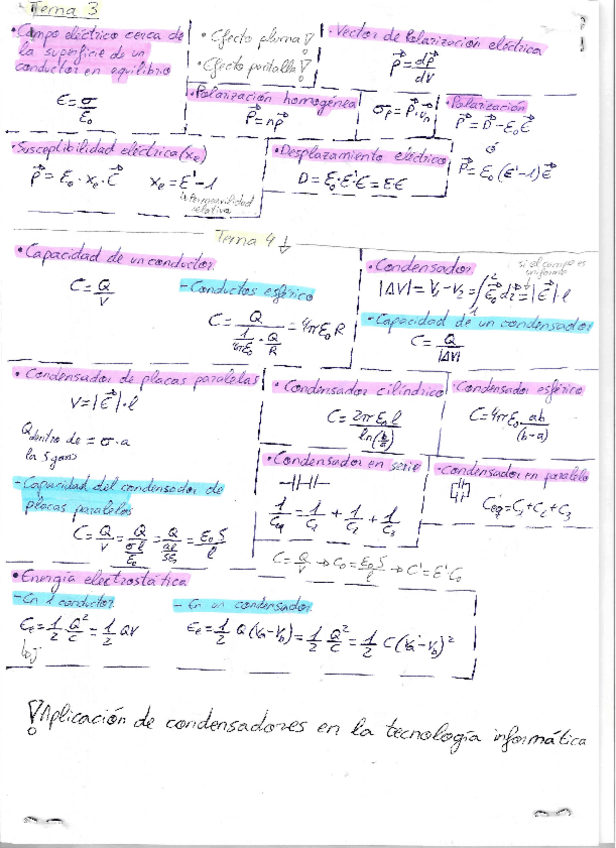 Tema 3
• Campo eléctrico cerca de
la superficie de un
conductor en equilibrio
E = σ/ε₀
• Efecto pluma!
• Efecto pantalla!
• Vector de Polarización eléctrica
P⃗ = dp⃗/dV
• Polarización homogénea
P⃗ = np⃗
σp = P⃗·u⃗n
• Polarización
P⃗ = D⃗ - ε₀E⃗
ó
P⃗ = ε₀(ε'-1)E⃗
• Susceptibilidad eléctrica (xe)
P⃗ = ε₀·xe·E⃗ xe = ε'-1
relativa
• Desplazamiento eléctrico
D = ε₀·ε'·E = ε·E
Tema 4
• Capacidad de un conductor
C = Q/V
- Conductos esférico
C = Q/(1/4πε₀·Q/R) = 4πε₀R
• Condensador
si el campo es
uniforme
|ΔV| = V₁-V₂ = ∫E⃗dl⃗ = |E⃗|l
- Capacidad de un condensador
C = Q/|ΔV|
• Condensador de placas paralelas
V = |E⃗|·l
Q dentro de = σ·a
la S gauss
- Capacidad del condensador de
placas paralelas
C = Q/V = Q/(σl/ε₀) = Q/(Ql/Sε₀) = ε₀S/l
• Condensador cilíndrico
C = 2πε₀l/ln(b/a)
• Condensador esférico
C = 4πε₀ ab/(b-a)
• Condensador en serie
1/Ceq = 1/C₁ + 1/C₂ + 1/C₃
• Condensador en paralelo
Ceq = C₁+C₂+C₃
C = Q/V → C₀ = ε₀S/l → C' = ε'C₀
• Energía electrostática
- En 1 conductor
Ee = 1/2 Q²/C = 1/2 QV
- En un condensador
Ee = 1/2 Q(Va-Vb) = 1/2 Q²/C = 1/2 C(Va-Vb)²
! Aplicación de condensadores en la tecnología informática